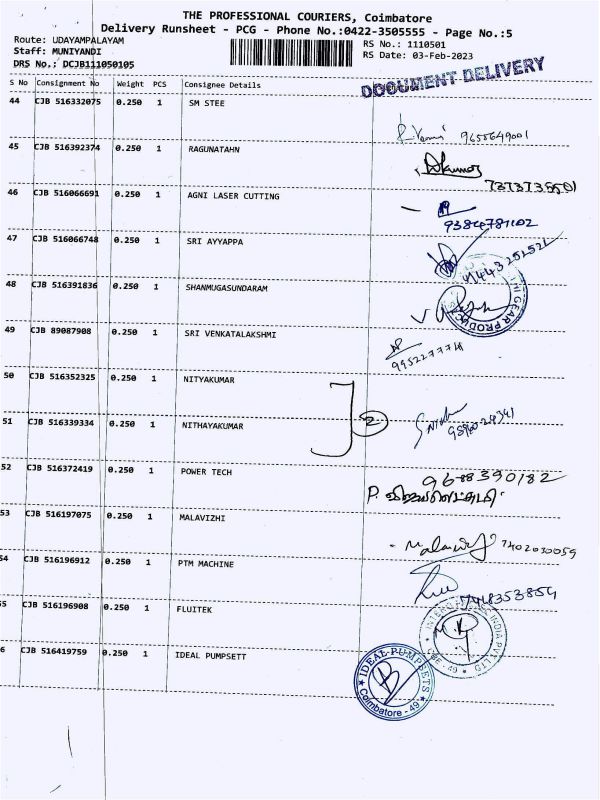 THE PROFESSIONAL COURIERS, Coimbatore
Delivery Runsheet - PCG - Phone No.:0422-3505555 - Page No.:5
Route: UDAYAMPALAYAM
RS No.: 1110501
Staff: MUNIYANDI
RS Date: 03-Feb-2023
DRS No.: DCJB111050105
DOCUMENT DELIVERY
S No Consignment No Weight PCS Consignee Details
44 CJB 516332075 0.250 1 SM STEE
9655649001
45 CJB 516392374 0.250 1 RAGUNATAHN
46 CJB 516066691 0.250 1 AGNI LASER CUTTING
9384781102
47 CJB 516066748 0.250 1 SRI AYYAPPA
48 CJB 516391836 0.250 1 SHANMUGASUNDARAM
GEAR PRODU
49 CJB 89087908 0.250 1 SRI VENKATALAKSHMI
50 CJB 516352325 0.250 1 NITYAKUMAR
2
51 CJB 516339334 0.250 1 NITHAYAKUMAR
52 CJB 516372419 0.250 1 POWER TECH
9688390182
53 CJB 516197075 0.250 1 MALAVIZHI
7402030059
54 CJB 516196912 0.250 1 PTM MACHINE
55 CJB 516196908 0.250 1 FLUITEK
INDIA PVT LTD
CBE - 49
6 CJB 516419759 0.250 1 IDEAL PUMPSETT
IDEAL PUMPSETS
Coimbatore - 49